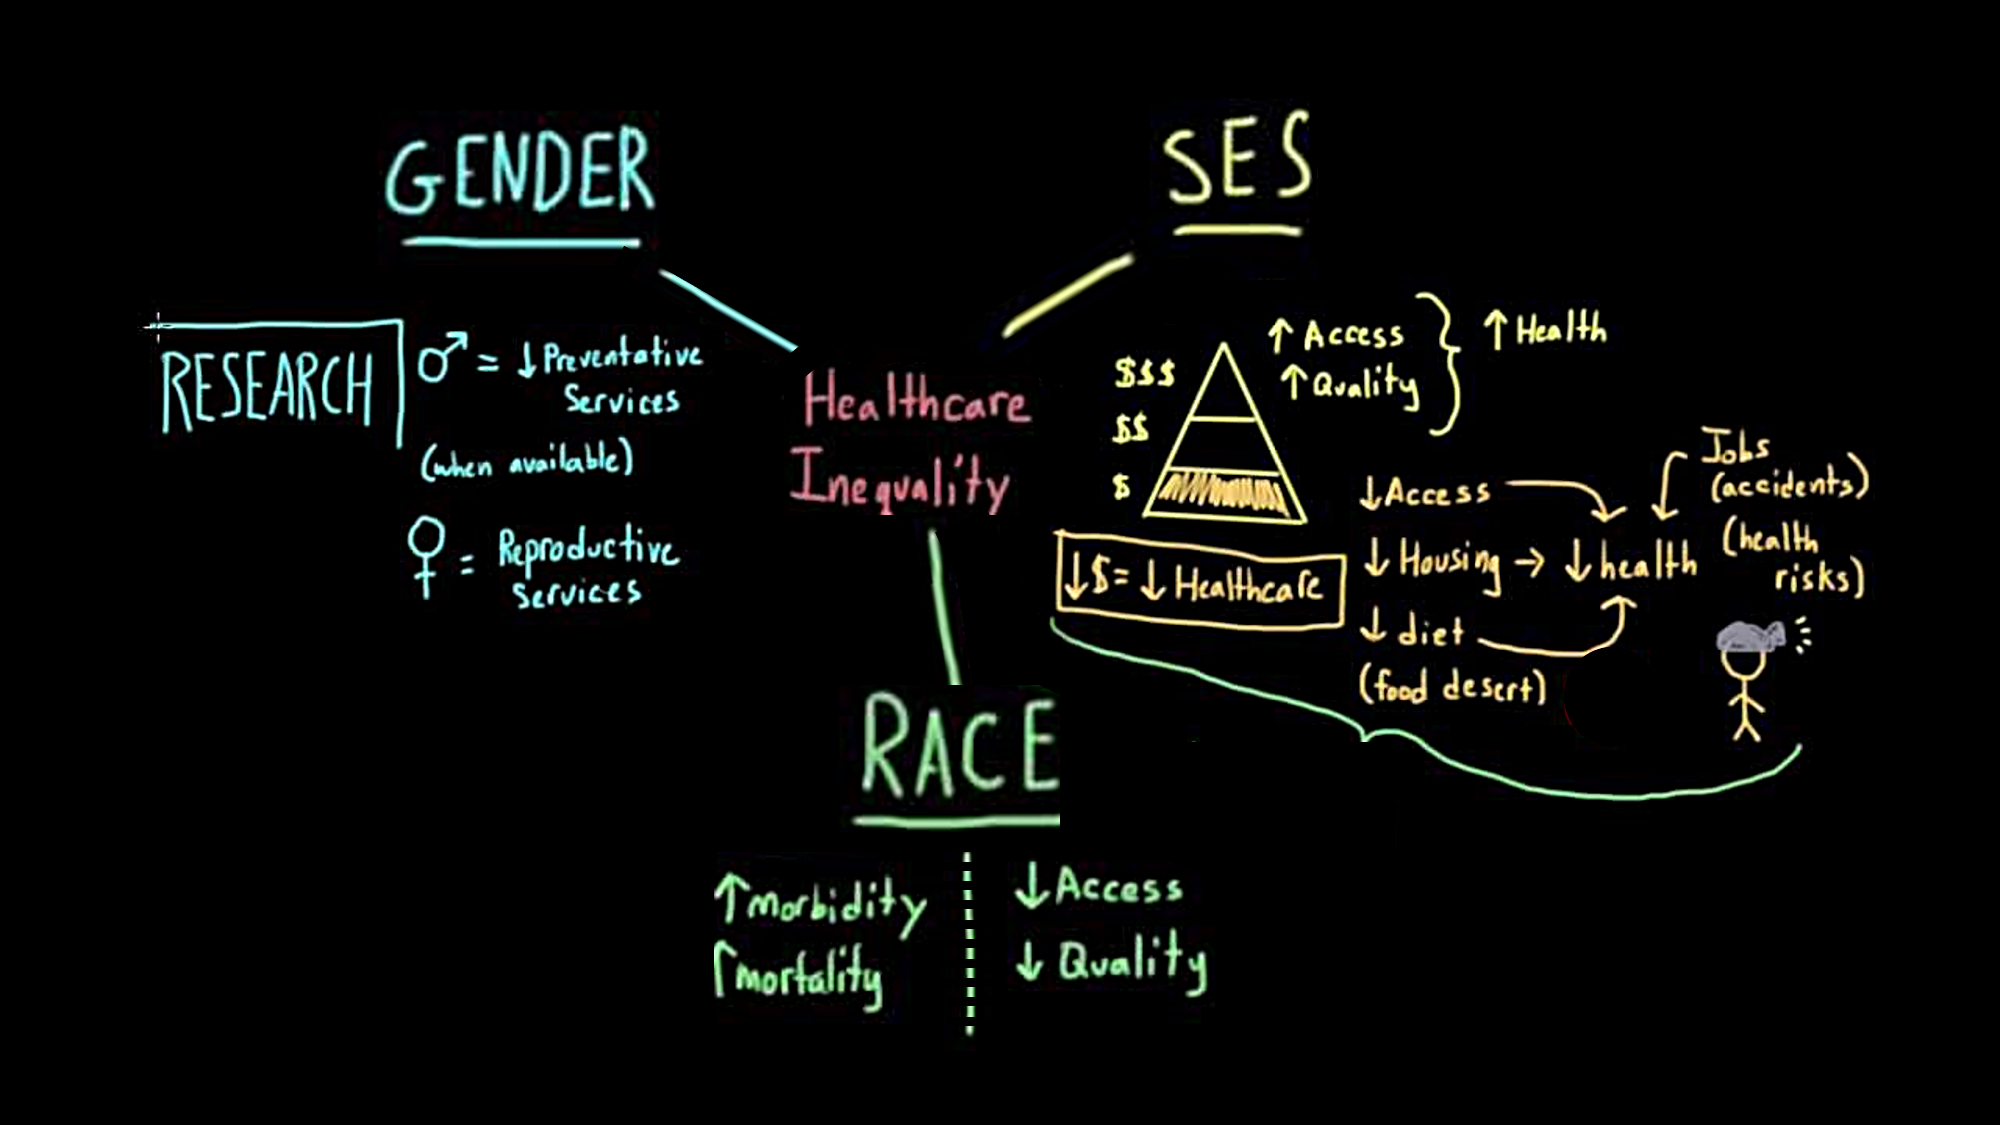 GENDER
RESEARCH
♂ = ↓ Preventative
Services
(when available)
♀ = Reproductive
services
SES
$$$
$$
$
↑ Access
↑ Quality
↑ Health
↓ $ = ↓ Healthcare
↓ Access
↓ Housing → ↓ health
↓ diet
(food desert)
Jobs
(accidents)
(health
risks)
Healthcare
Inequality
RACE
↑ morbidity
↑ mortality
↓ Access
↓ Quality